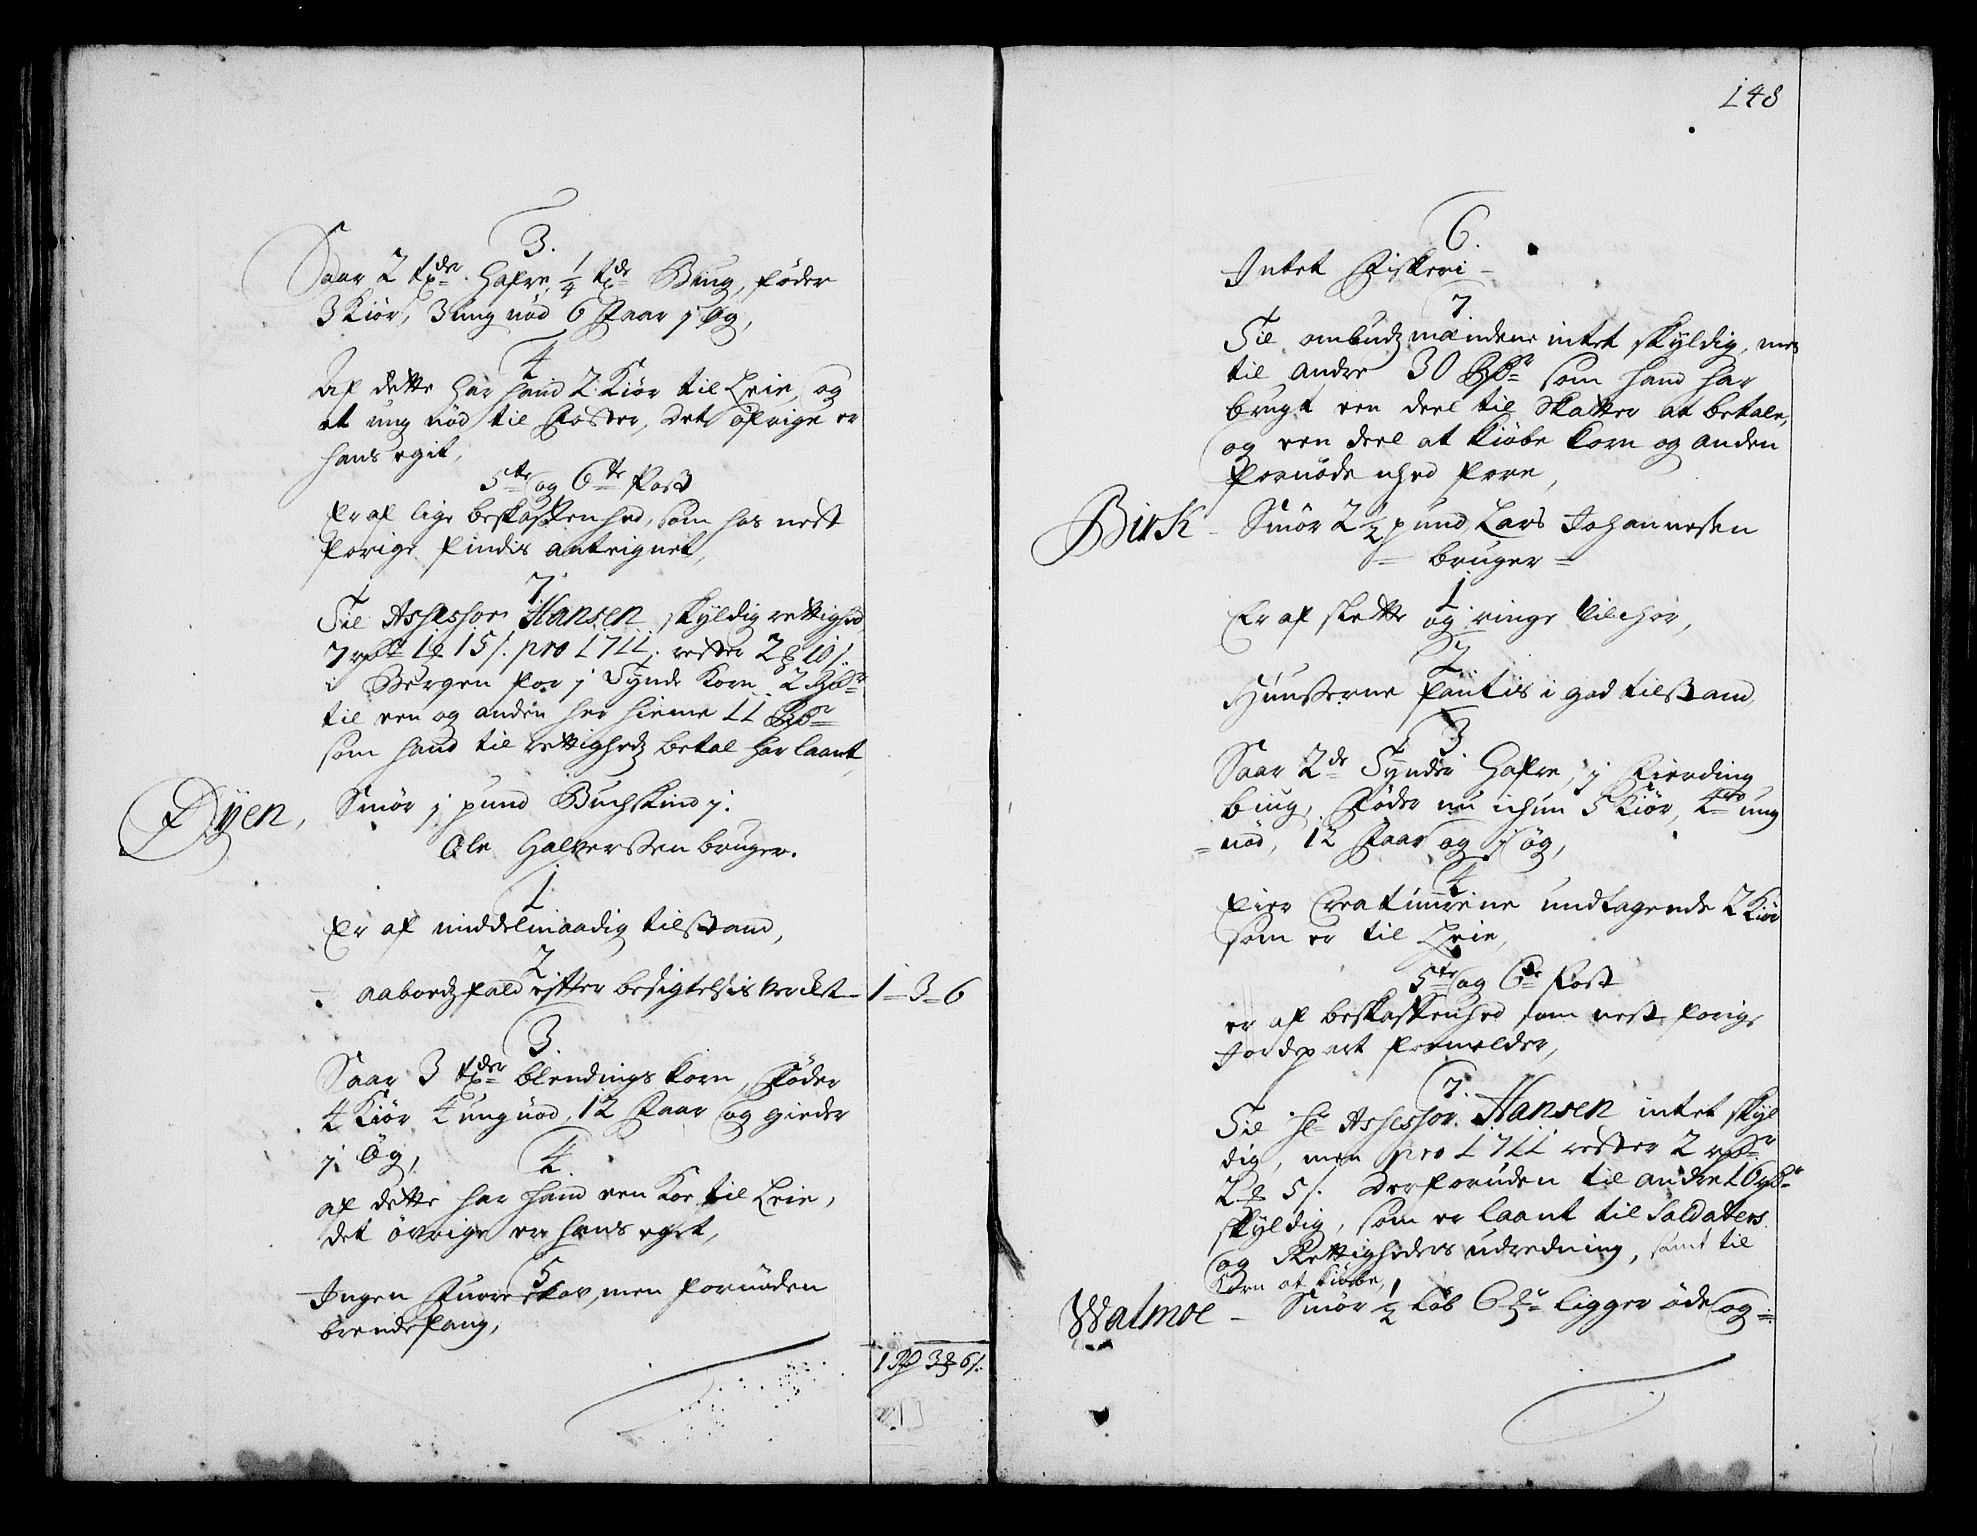 3.
Saar 2 tdr Hafre, 1/4 tde Biug, føder
3 Kiør, 3 ung nød 6 Faar j Øg,
4
Af dette har hand 2 Kiør til Leie, og
et ung nød til Foster, det øfrige er
hans egit,
5te og 6te Post
Er af lige beskaffenhed, som hos nest
forige findis anteignet,
7.
Til Assessor Hansen skyldig rettighed
7 rdr 1 15 s. pro 1711. rester 2 10 s.
i Bergen for j Tynde Korn 2 Rdr
til een og anden her hieme 11 Rdr
som hand til rettighedz betal har laant,
Dyen, Smør j pund Buchskind j.
Ole Halversen bruger.
1.
Er af middelmaadig tilstand,
2
aabordz fald efter besigtelsis værdet 1 - 3 - 6
3.
Saar 3 tdr blendings korn, føder
4 Kiør 4 ung nød, 12 Faar og gieder
j Øg,
4.
af dette har hand een Koe til Leie,
det øvrige er hans eget,
5
Ingen Fuore skov, men fornøden
brendefang,
1 Rd 3 6 s.
148
6.
Intet Fiskeri
7
Til ombudz mændene intet skyldig, men
til andre 30 Rdr som hand har
brugt een deel til Skatter at betale,
og een deel at kiøbe Korn og anden
fornødenhed fore,
Birk - Smør 2 1/2 pund Lars Johannesen
= bruger =
1
Er af slette og ringe vilchor,
2.
Huusserne fantis i god tilstand,
3.
Saar 2de Tynder Hafre, j Fierding
biug, Føder nu ichun 5 Kiør, 4re ung
= nød, 12 Faar og j øg,
4
Eier Creaturene undtagende 2 Kiør
som er til Leie,
5te og 6te Post
er af beskaffenhed som nest forige
Jordepart formelder,
7.
Til Hr Assessor Hansen intet skyl
dig, men pro 1711 rester 2 rdr
2 5 s. Derforuden til andre 16 rdr
skyldig, som er laant til Saldaters
og Rettigheders udredning, samt til
Korn at kiøbe,
Walmoe - Smør 1/2 Løb 6 ligger øde og =